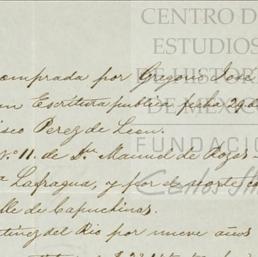 CENTRO DE
ESTUDIOS
DE HISTORIA
DE MÉXICO
FUNDACIÓN
Carlos Slim
comprada por Gregorio José
Escritura publica fecha 29 de
Perez de Leon.
Nº 11. de Dn. Manuel de Rozas
Lafragua, y por el norte co
lle de Capuchinas.
tinez del Rio por nueve años